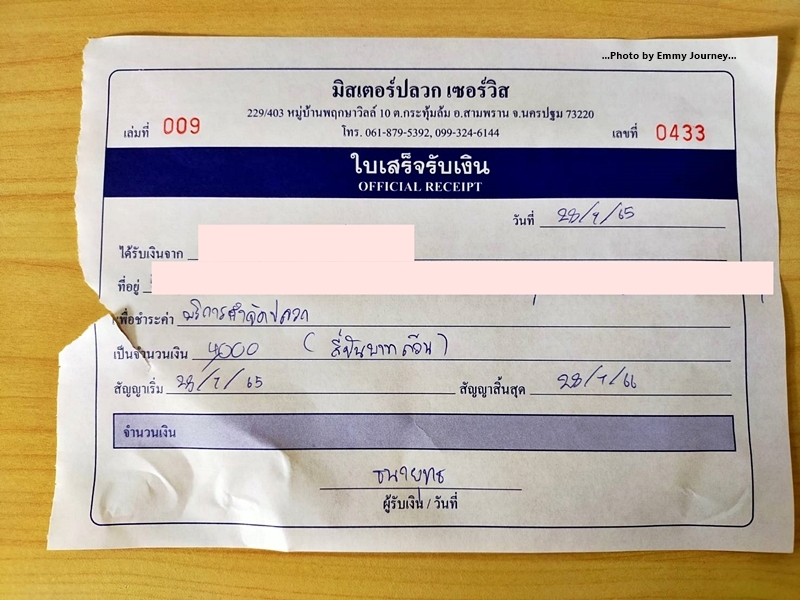 ...Photo by Emmy Journey...
มิสเตอร์ปลวก เซอร์วิส
229/403 หมู่บ้านพฤกษาวิลล์ 10 ต.กระทุ่มล้ม อ.สามพราน จ.นครปฐม 73220
เล่มที่ 009 โทร. 061-879-5392, 099-324-6144 เลขที่ 0433
ใบเสร็จรับเงิน
OFFICIAL RECEIPT
วันที่ 28/7/65
ได้รับเงินจาก
ที่อยู่
เพื่อชำระค่า บริการกำจัดปลวก
เป็นจำนวนเงิน 4000 (สี่พันบาทถ้วน)
สัญญาเริ่ม 28/7/65 สัญญาสิ้นสุด 28/7/66
จำนวนเงิน
ธนายุทธ
ผู้รับเงิน / วันที่